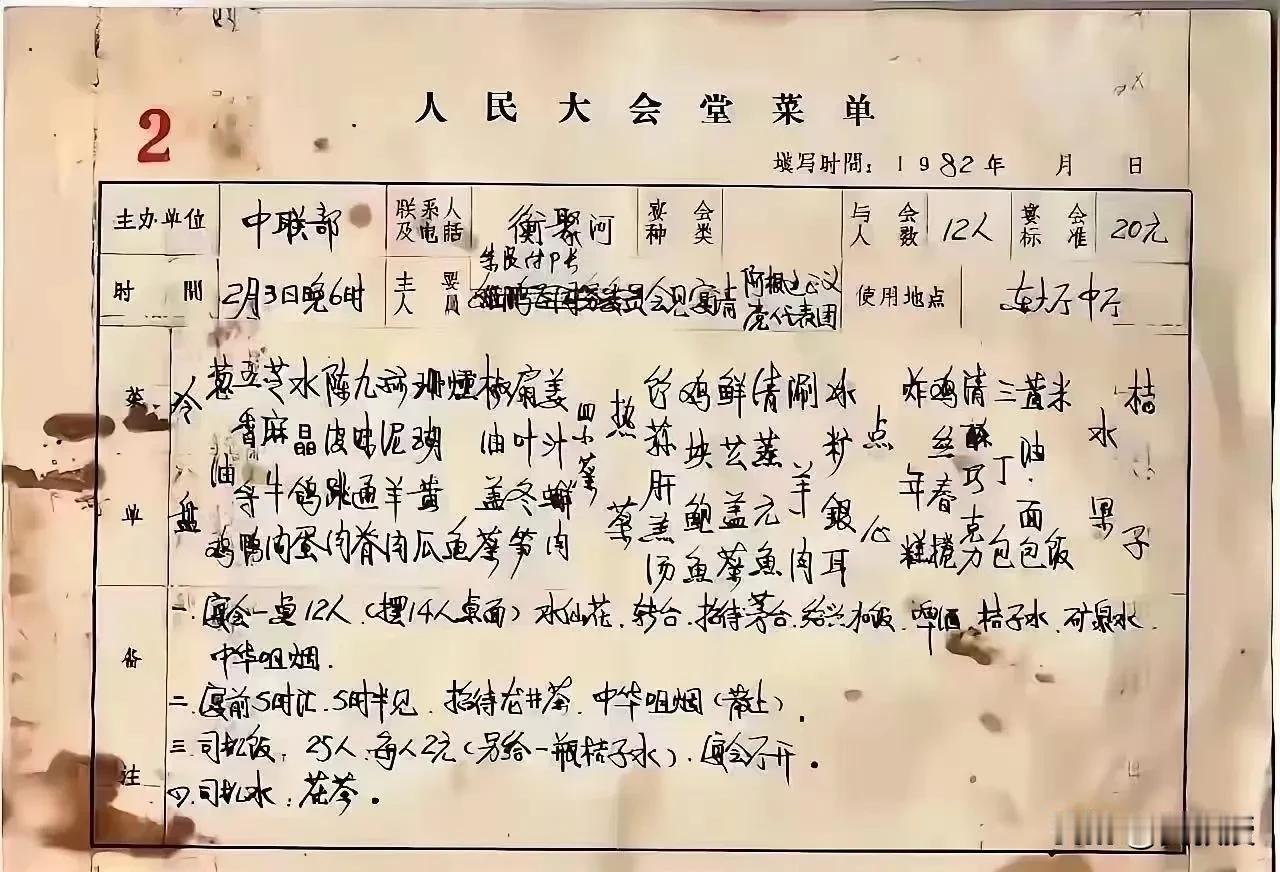 2
人民大会堂菜单
填写时間：1982年 月 日
主办单位 中联部 联系人及电话 衡聚河 宴会种类 与会人数 12人 宴会标准 20元
朱良付部长
时間 2月3日晚6时 主要人員 会见宴请 阿根廷正义党代表团 使用地点 东大厅中厅
菜单
冷盘
葱油鸡
五香鸭
芝麻牛肉
水晶鸽蛋
陈皮肉
九味通脊
蒜泥羊肉
珊瑚黄瓜
燻鱼
椒油盖菜
扇叶冬笋
姜汁蟹肉
四小菜
热菜
竹荪肝羔汤
鸡块鲍鱼
鲜芸盖菜
清蒸元鱼
涮羊肉
冰籵銀耳
点心
炸年糕
鸡丝春捲
清酥巧克力
三丁包
黄油面包
米饭
水果
桔子
备注
一.宴会一桌12人（摆14人桌面）水仙花.转台.招待茅台.绍兴.啤酒.桔子水.矿泉水.
中华咀烟.
二.宴前5时汇.5时半见.招待龙井茶.中华咀烟（带上）.
三.司机饭：25人.每人2元（另给一瓶桔子水）.宴会厅开。
四.司机水：花茶。